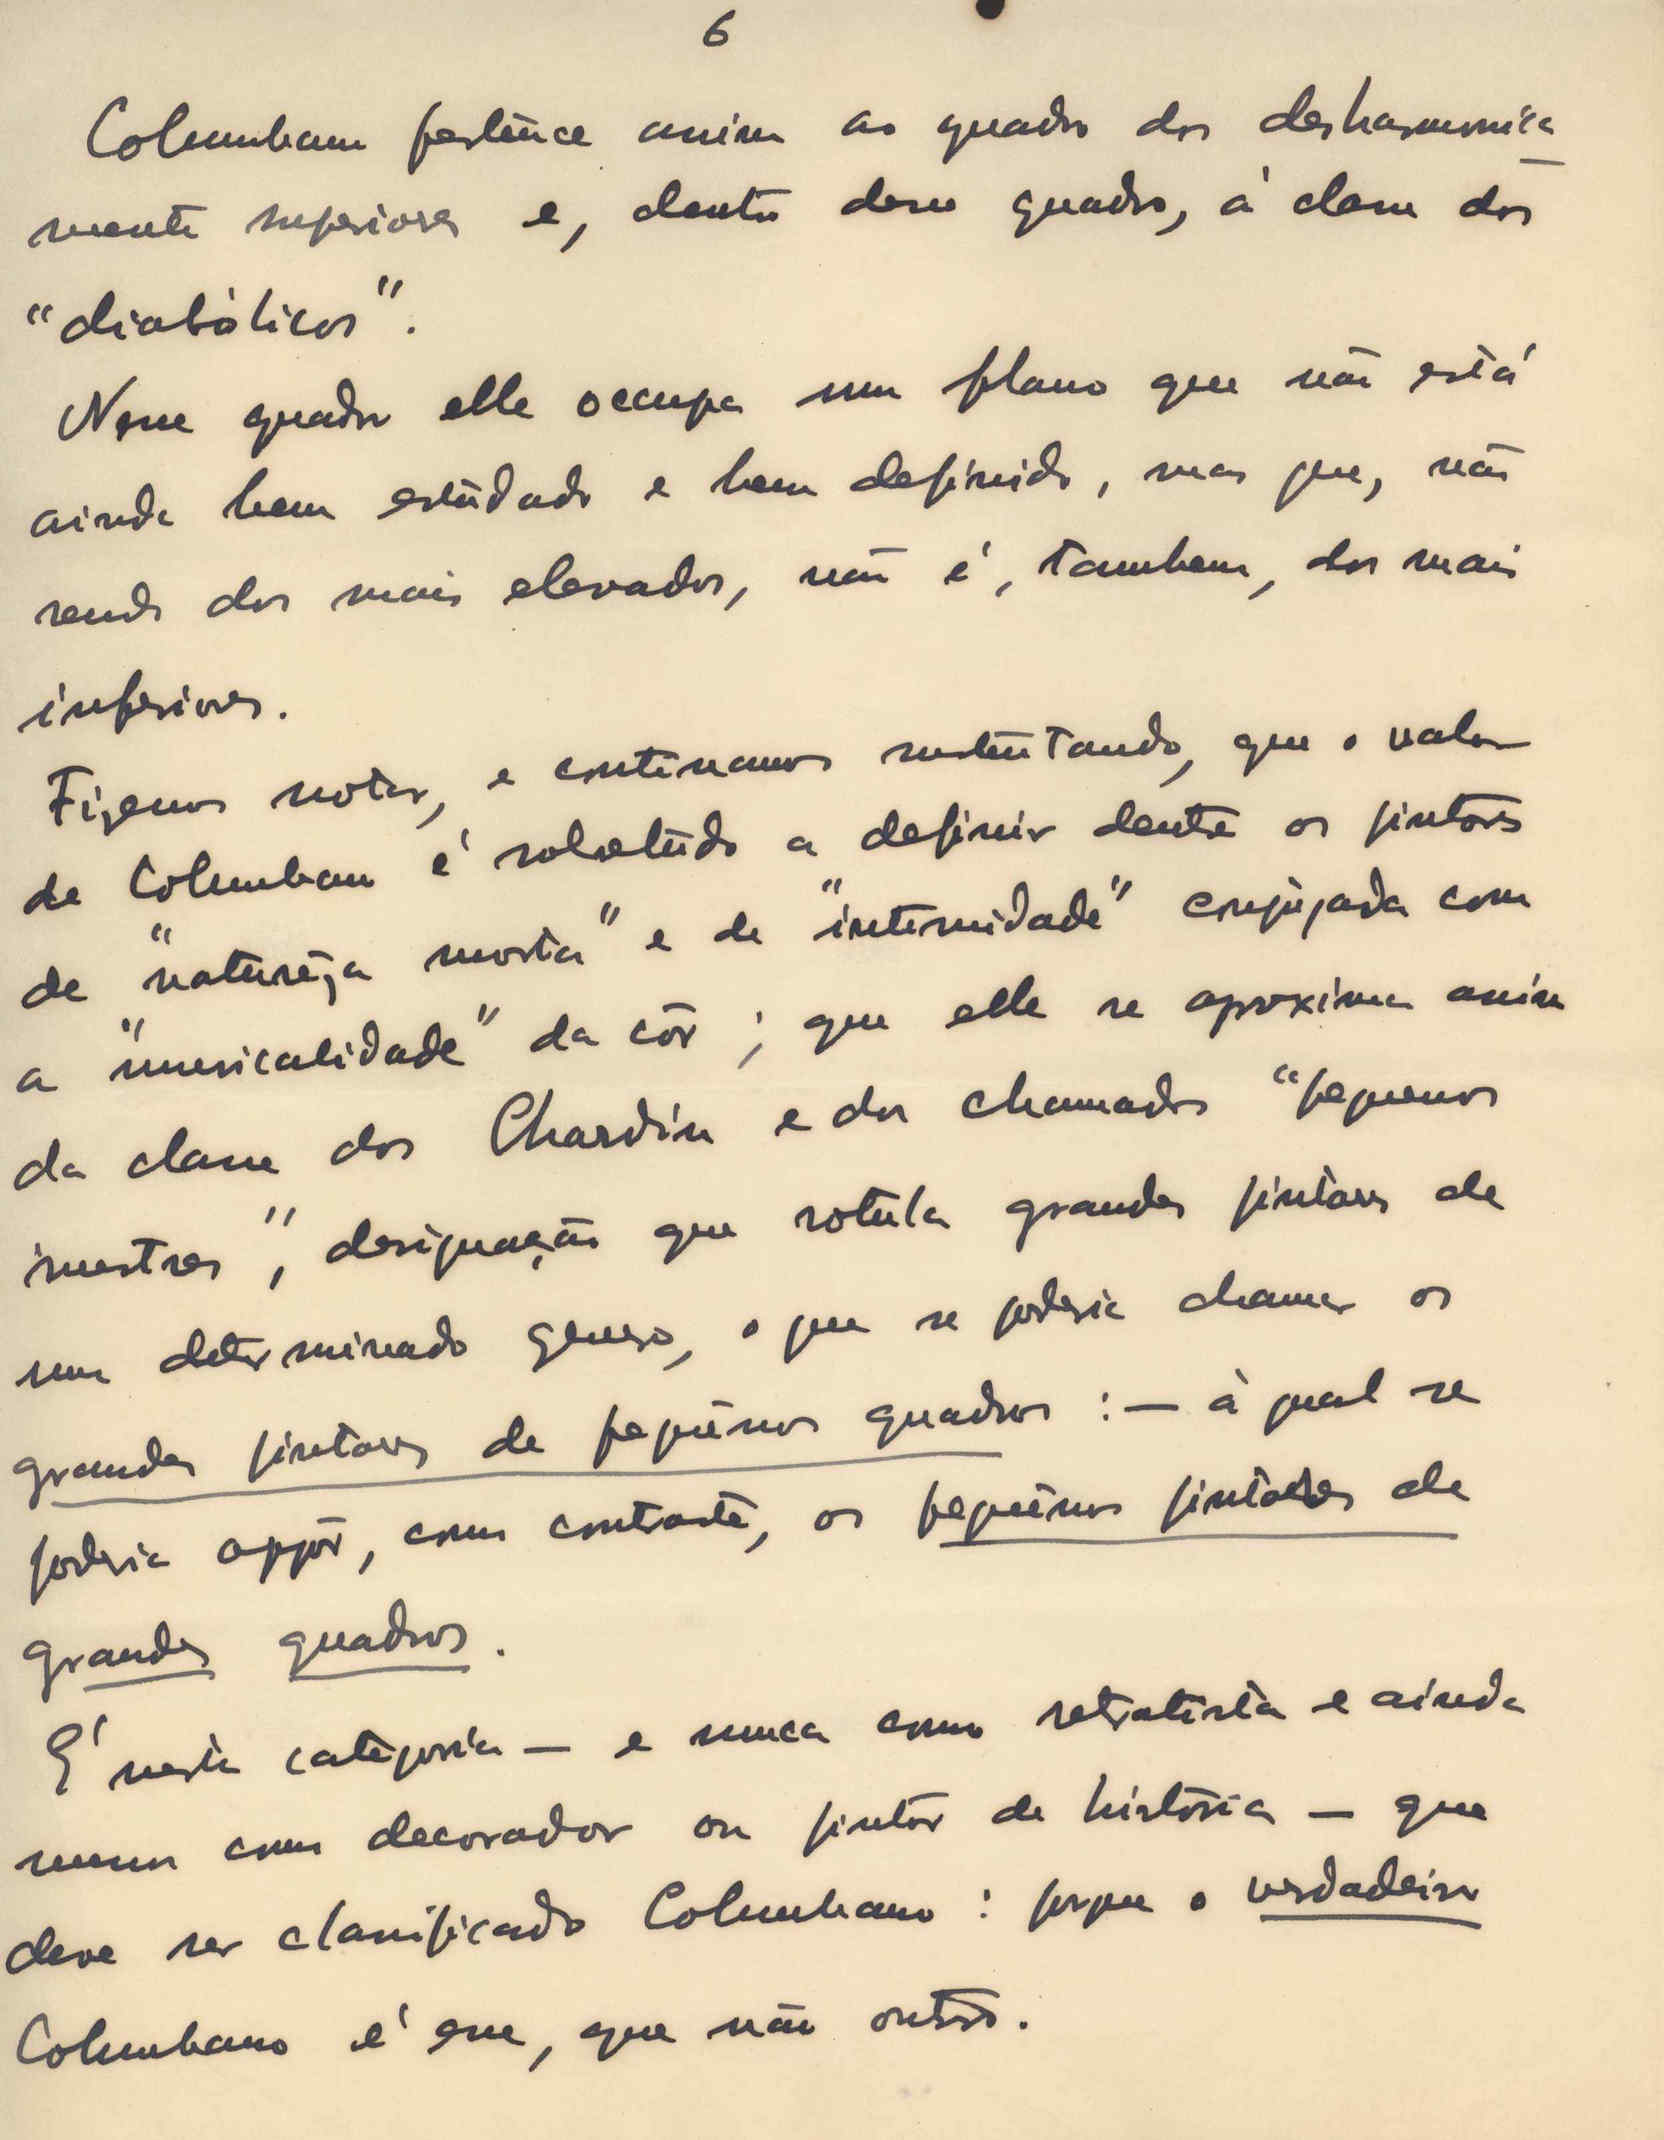 6
Columbano pertence assim ao quadro dos desharmonica
mente superiores e, dentro desse quadro, á classe dos
"diabólicos".
Nesse quadro elle occupa um plano que não está
ainda bem estudado e bem definido, mas que, não
sendo dos mais elevados, não é, tambem, dos mais
inferiores.
Fizemos notar, e continuamos sustentando, que o valor
de Columbano é sobretudo a definir dentre os pintores
de "natureza morta" e de "intimidade" conjugada com
a "musicalidade" da côr ; que elle se aproxima assim
da classe dos Chardin e dos chamados "pequenos
mestres", designação que rotula grandes pintores de
um determinado genero, o que se poderia chamar os
grandes pintores de pequenos quadros : — à qual se
poderia oppôr, como contraste, os pequenos pintores de
grandes quadros.
É nesta categoria — e nunca como retratista e ainda
menos como decorador ou pintor de história — que
deve ser classificado Columbano : porque o verdadeiro
Columbano é esse, que não outro.